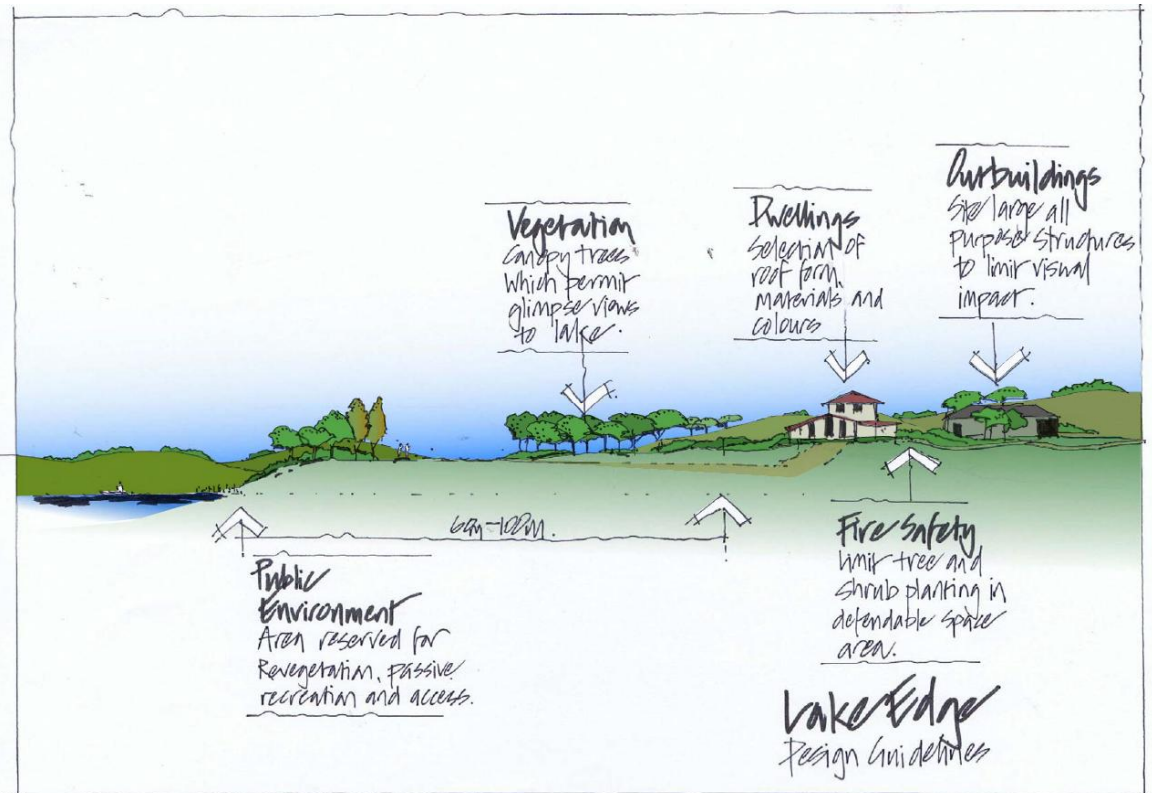 Vegetation
Canopy trees
which permit
glimpse views
to lake.
Dwellings
Selection of
roof form,
materials and
colours
Outbuildings
Site large all
purpose structures
to limit visual
impact.
60m-100m.
Public
Environment
Area reserved for
Revegetation, passive
recreation and access.
Fire Safety
Limit tree and
shrub planting in
defendable space
area.
Lake Edge
Design Guidelines